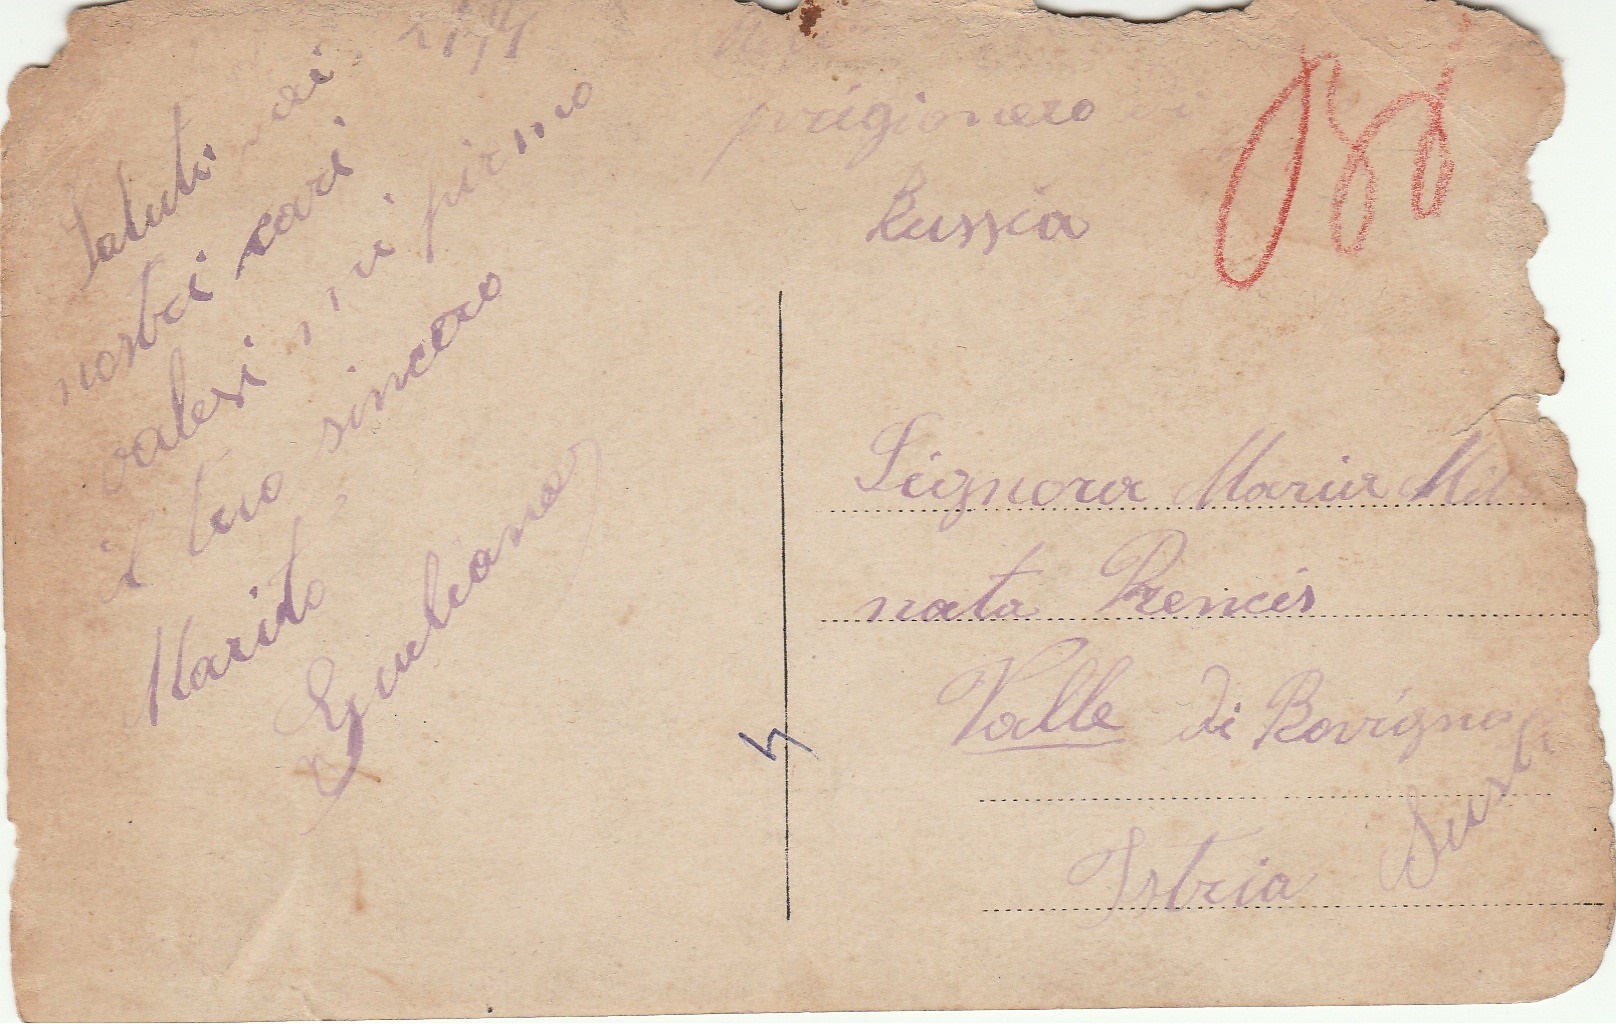 Saluti voi
nostri cari
valesi mi firmo
il tuo sincero
Marito
Giuliano
prigionero in
Russia
Signora Maria
nata Prencis
Valle di Rovigno
Istria